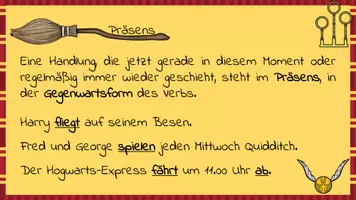 Präsens
Eine Handlung, die jetzt gerade in diesem Moment oder
regelmäßig immer wieder geschieht, steht im Präsens, in
der Gegenwartsform des Verbs.
Harry fliegt auf seinem Besen.
Fred und George spielen jeden Mittwoch Quidditch.
Der Hogwarts-Express fährt um 11.00 Uhr ab.